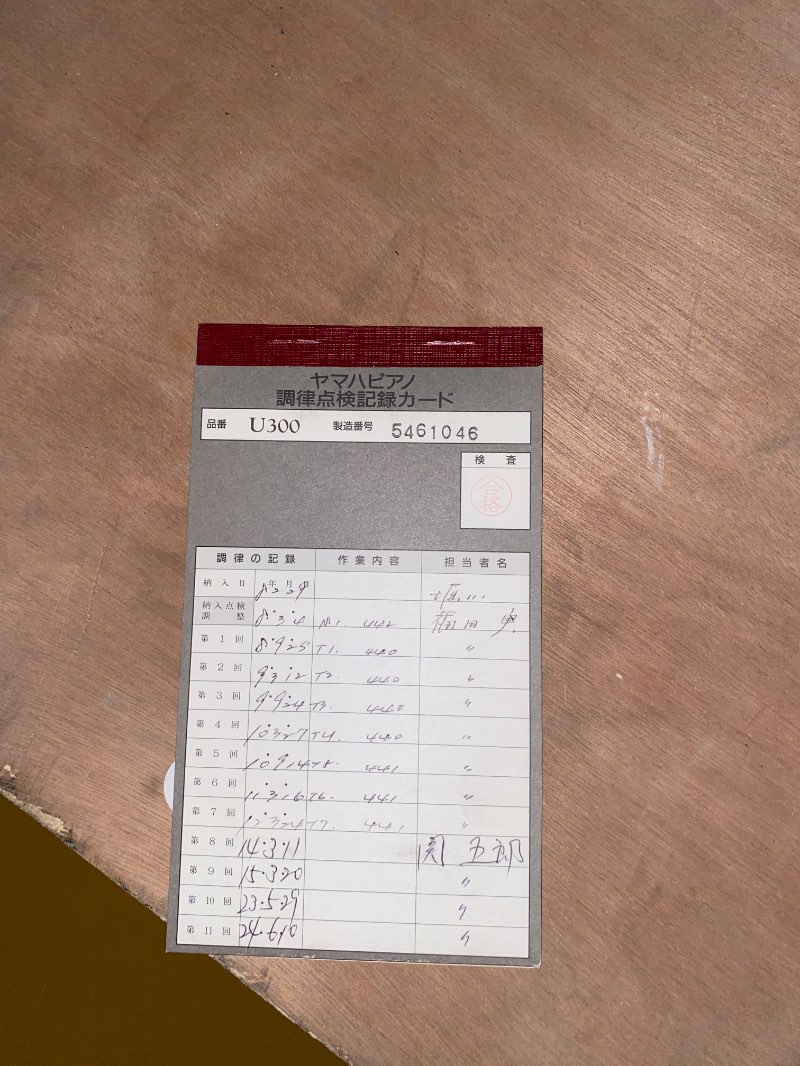 ヤマハピアノ
調律点検記録カード
品番 U300 製造番号 5461046
検査
合格
調律の記録 作業内容 担当者名
納入日 8年2月29日
納入点検調整 8・3・4 442
第1回 8・9・25 T1. 440 〃
第2回 9・3・12 T2. 440 〃
第3回 9・9・24 T3. 440 〃
第4回 10・3・27 T4. 440 〃
第5回 10・9・14 441 〃
第6回 11・3・16 T6. 441 〃
第7回 12・3・24 T7. 441 〃
第8回 14・3・11 関 五郎
第9回 15・3・20 〃
第10回 23・5・29 〃
第11回 24・6・10 〃